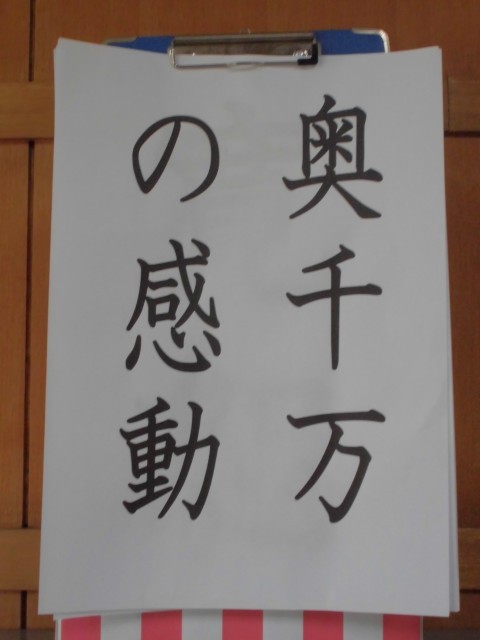 奥千万
の感動